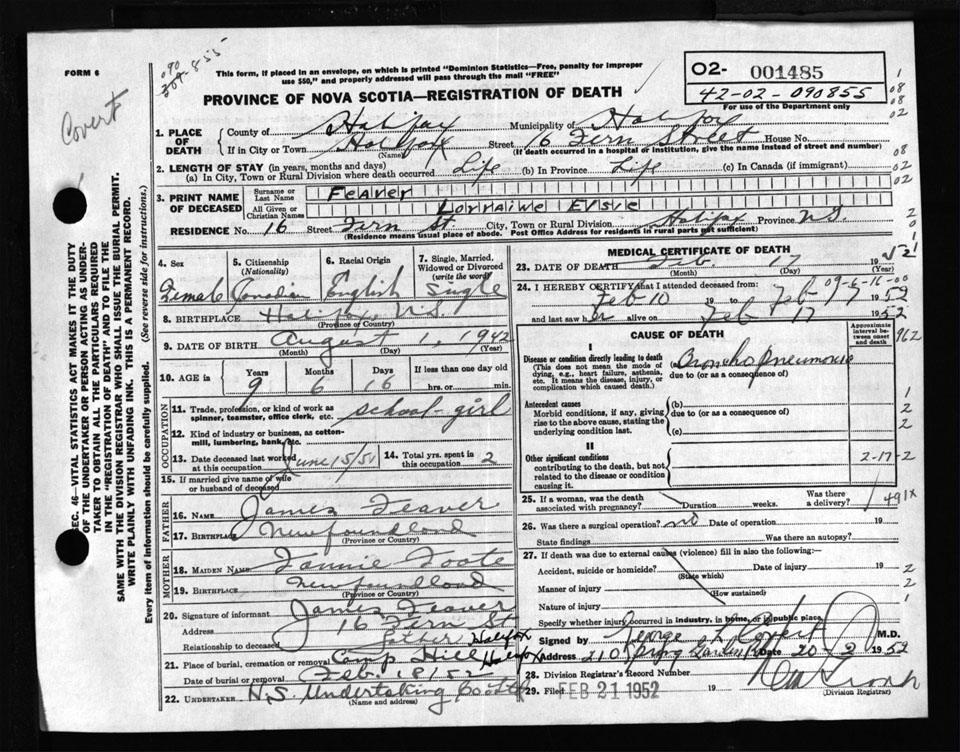 FORM 6
090
309-855
Covert
This form, if placed in an envelope, on which is printed "Dominion Statistics—Free, penalty for improper
use $50," and properly addressed will pass through the mail "FREE"
PROVINCE OF NOVA SCOTIA—REGISTRATION OF DEATH
O2- 001485
42-02-090855
For use of the Department only
1. PLACE OF DEATH County of Halifax Municipality of Halifax
If in City or Town Halifax Street 16 Fern Street House No.
(Name) (If death occurred in a hospital or institution, give the name instead of street and number)
2. LENGTH OF STAY (in years, months and days)
(a) In City, Town or Rural Division where death occurred Life (b) In Province Life (c) In Canada (if immigrant)
3. PRINT NAME OF DECEASED Surname or Last Name Feaver
All Given or Christian Names Lorraine Elsie
RESIDENCE No. 16 Street Fern St City, Town or Rural Division Halifax Province N.S.
(Residence means usual place of abode. Post Office Address for residents in rural parts not sufficient)
SEC. 46—VITAL STATISTICS ACT MAKES IT THE DUTY
OF THE UNDERTAKER OR PERSON ACTING AS UNDER-
TAKER TO OBTAIN ALL THE PARTICULARS REQUIRED
IN THE "REGISTRATION OF DEATH" AND TO FILE THE
SAME WITH THE DIVISION REGISTRAR WHO SHALL ISSUE THE BURIAL PERMIT.
WRITE PLAINLY WITH UNFADING INK. THIS IS A PERMANENT RECORD.
Every item of Information should be carefully supplied. (See reverse side for instructions.)
4. Sex Female
5. Citizenship (Nationality) Canadian
6. Racial Origin English
7. Single, Married, Widowed or Divorced (write the word) Single
8. BIRTHPLACE Halifax, N.S.
(Province or Country)
9. DATE OF BIRTH August 1, 1942
(Month) (Day) (Year)
10. AGE is Years 9 Months 6 Days 16 If less than one day old hrs. or min.
OCCUPATION
11. Trade, profession, or kind of work as spinner, teamster, office clerk, etc. school-girl
12. Kind of industry or business, as cotton-mill, lumbering, bank, etc.
13. Date deceased last worked at this occupation June 15/51
14. Total yrs. spent in this occupation 2
15. If married give name of wife or husband of deceased
FATHER
16. NAME James Feaver
17. BIRTHPLACE Newfoundland
(Province or Country)
MOTHER
18. MAIDEN NAME Fannie Foote
19. BIRTHPLACE Newfoundland
(Province or Country)
20. Signature of informant James Feaver
Address 16 Fern St Halifax
Relationship to deceased Father
21. Place of burial, cremation or removal Camp Hill Halifax
Date of burial or removal Feb. 18/52
22. UNDERTAKER N.S. Undertaking Co Ltd
(Name and address)
MEDICAL CERTIFICATE OF DEATH
23. DATE OF DEATH Feb. 17 1952
(Month) (Day) (Year)
24. I HEREBY CERTIFY that I attended deceased from:
Feb-10 19 to Feb 1952
and last saw her alive on Feb 17 1952
CAUSE OF DEATH
Approximate interval between onset and death
I
Disease or condition directly leading to death
(This does not mean the mode of dying, e.g., heart failure, asthenia, etc. It means the disease, injury, or complication which caused death.)
Bronchopneumonia
due to (or as a consequence of)
Antecedent causes
Morbid conditions, if any, giving rise to the above cause, stating the underlying condition last.
(b)
due to (or as a consequence of)
(c)
II
Other significant conditions
contributing to the death, but not related to the disease or condition causing it.
2-17-2
491X
25. If a woman, was the death associated with pregnancy? Duration weeks. Was there a delivery?
26. Was there surgical operation? no Date of operation 19
State findings Was there an autopsy?
27. If death was due to external causes (violence) fill in also the following:—
Accident, suicide or homicide? Date of injury 19
(State which)
Manner of injury
(How sustained)
Nature of injury
Specify whether injury occurred in industry, in home, or in public place.
Signed by George M.D.
Address 210 Spring Garden Rd Date 20 2 1952
28. Division Registrar's Record Number
29. Filed FEB 21 1952 19
(Division Registrar)